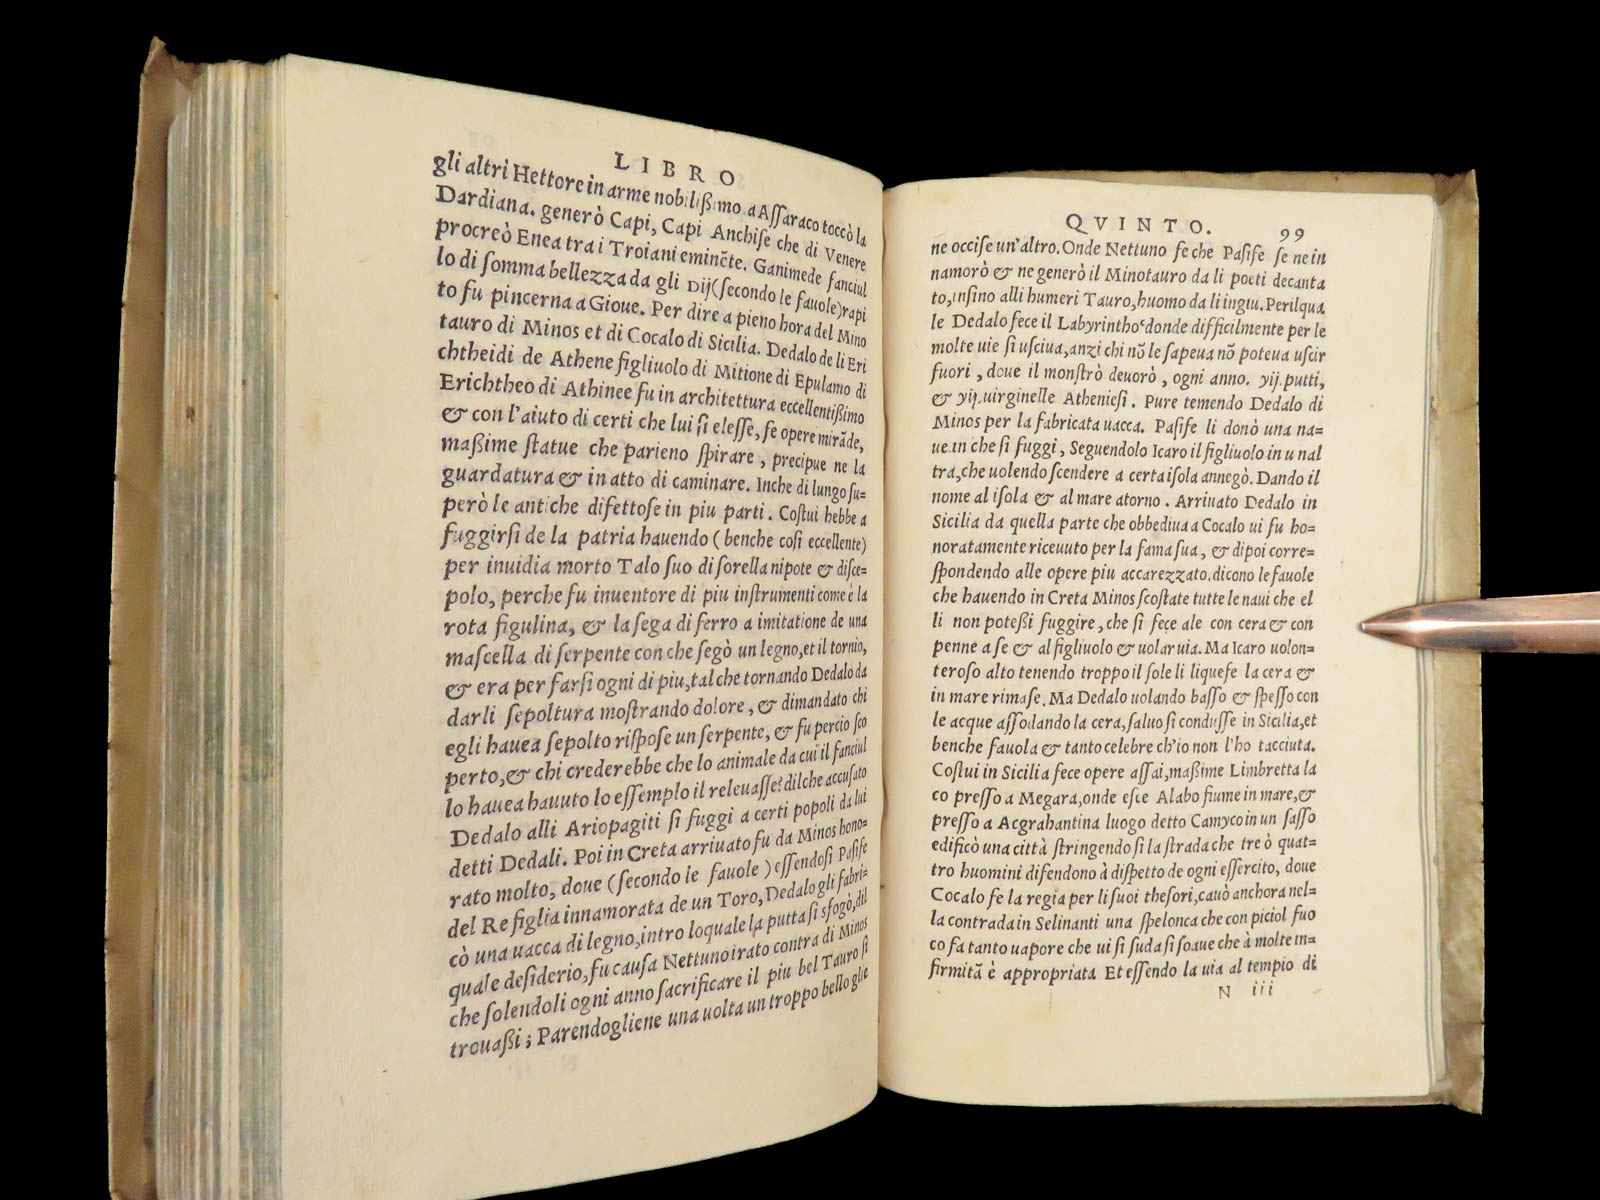 LIBRO
gli altri Hettore in arme nobilißimo. a Aſſaraco toccò la
Dardiana. generò Capi, Capi Anchiſe che di Venere
procreò Enea tra i Troiani eminẽte. Ganimede fanciul
lo di ſomma bellezza da gli Dij (ſecondo le fauole) rapi
to fu pincerna a Gioue. Per dire a pieno hora del Mino
tauro di Minos et di Cocalo di Sicilia. Dedalo de li Eri
chtheidi de Athene figliuolo di Mitione di Epulamo di
Erichtheo di Athinee fu in architettura eccellentißimo
& con l'aiuto di certi che lui ſi eleſſe, fe opere mirãde,
maßime ſtatue che parieno ſpirare, precipue ne la
guardatura & in atto di caminare. Inche di lungo ſu=
però le antiche difettoſe in piu parti. Coſtui hebbe a
fuggirſi de la patria hauendo (benche coſi eccellente)
per inuidia morto Talo ſuo di ſorella nipote & diſce=
polo, perche fu inuentore di piu inſtrumenti come è la
rota figulina, & la ſega di ferro a imitatione de una
maſcella di ſerpente con che ſegò un legno, et il tornio,
& era per farſi ogni di piu, tal che tornando Dedalo da
darli ſepoltura moſtrando dolore, & dimandato chi
egli hauea ſepolto riſpoſe un ſerpente, & fu percio ſco
perto, & chi crederebbe che lo animale da cui il fanciul
lo hauea hauuto lo eſſempio il releuaſſe? dilche accuſato
Dedalo alli Ariopagiti ſi fuggi a certi popoli da lui
detti Dedali. Poi in Creta arriuato fu da Minos hono=
rato molto, doue (ſecondo le fauole) eſſendoſi Paſife
del Re figlia innamorata de un Toro, Dedalo gli fabri=
cò una uacca di legno, intro loquale la putta ſi sfogò, dil
quale deſiderio, fu cauſa Nettuno irato contra di Minos
che ſolendoli ogni anno ſacrificare il piu bel Tauro ſi
trouaßi; Parendogliene una uolta un troppo bello glie
QVINTO. 99
ne occiſe un'altro. Onde Nettuno fe che Paſife ſe ne in
namorò & ne generò il Minotauro da li poeti decanta
to, inſino alli humeri Tauro, huomo da li ingiu. Perilqua
le Dedalo fece il Labyrintho donde difficilmente per le
molte uie ſi uſciua, anzi chi nõ le ſapeua nõ poteua uſcir
fuori, doue il monſtrò deuorò, ogni anno. yij. putti,
& yij. uirginelle Athenieſi. Pure temendo Dedalo di
Minos per la fabricata uacca. Paſife li donò una na=
ue in che ſi fuggi, Seguendolo Icaro il figliuolo in u nal
tra, che uolendo ſcendere a certa iſola annegò. Dando il
nome al iſola & al mare atorno. Arriuato Dedalo in
Sicilia da quella parte che obbediua a Cocalo ui fu ho=
noratamente riceuuto per la fama ſua, & dipoi corre=
ſpondendo alle opere piu accarezzato. dicono le fauole
che hauendo in Creta Minos ſcoſtate tutte le naui che el
li non poteßi fuggire, che ſi fece ale con cera & con
penne a ſe & al figliuolo & uolar uia. Ma Icaro uolon=
teroſo alto tenendo troppo il ſole li liquefe la cera &
in mare rimaſe. Ma Dedalo uolando baſſo & ſpeſſo con
le acque aſſodando la cera, ſaluo ſi conduſſe in Sicilia, et
benche fauola & tanto celebre ch'io non l'ho tacciuta.
Coſtui in Sicilia fece opere aſſai, maßime Limbretta la
co preſſo a Megara, onde eſce Alabo fiume in mare, &
preſſo a Acgrahantina luogo detto Camyco in un ſaſſo
edificò una città ſtringendo ſi la ſtrada che tre ò quat=
tro huomini difendono à diſpetto de ogni eſſercito, doue
Cocalo fe la regia per li ſuoi theſori, cauò anchora nel=
la contrada in Selinanti una ſpelonca che con piciol fuo
co fa tanto uapore che ui ſi ſuda ſi ſoaue che à molte in=
firmità è appropriata Et eſſendo la uia al tempio di
N iii